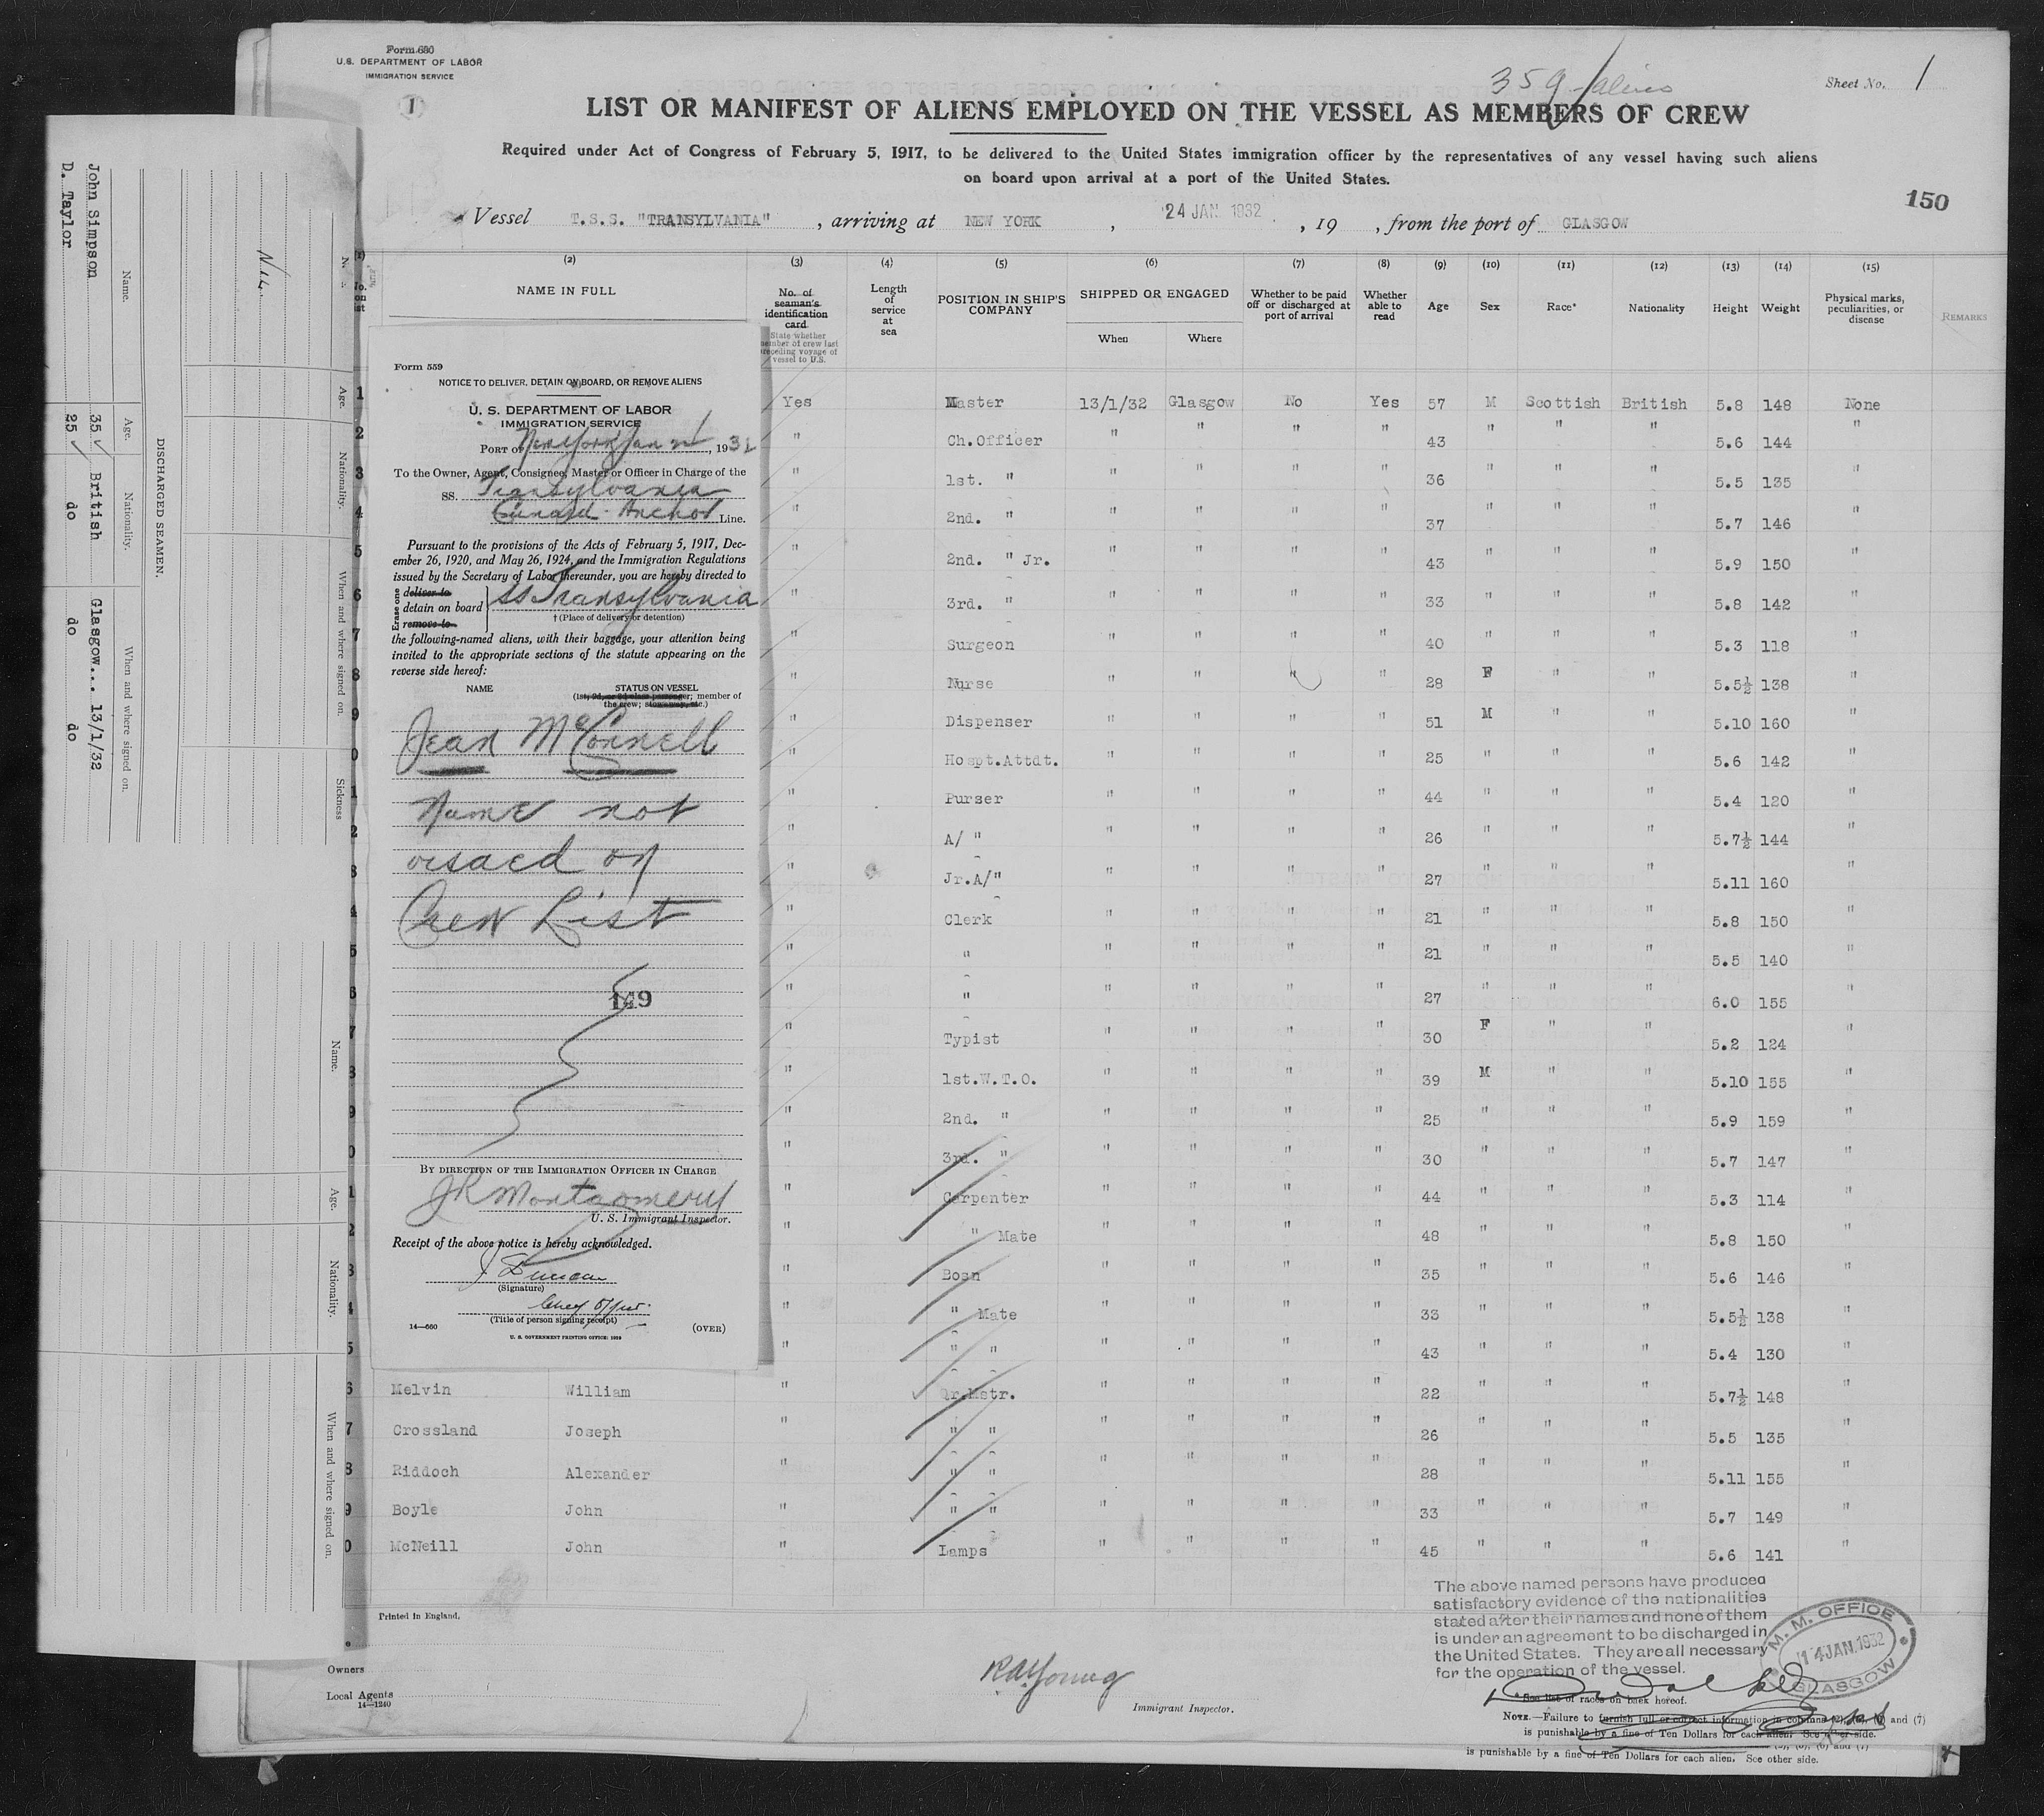 Form 680
U.S. DEPARTMENT OF LABOR
IMMIGRATION SERVICE
1
359 aliens
Sheet No. 1
LIST OR MANIFEST OF ALIENS EMPLOYED ON THE VESSEL AS MEMBERS OF CREW
Required under Act of Congress of February 5, 1917, to be delivered to the United States immigration officer by the representatives of any vessel having such aliens
on board upon arrival at a port of the United States.
150
Vessel T.S.S. "TRANSYLVANIA", arriving at NEW YORK, 24 JAN 1932, 19 , from the port of GLASGOW
(2) (3) (4) (5) (6) (7) (8) (9) (10) (11) (12) (13) (14) (15)
NAME IN FULL
No. of seaman's identification card
State whether member of crew last preceding voyage of vessel to U.S.
Length of service at sea
POSITION IN SHIP'S COMPANY
SHIPPED OR ENGAGED
When Where
Whether to be paid off or discharged at port of arrival
Whether able to read
Age
Sex
Race*
Nationality
Height
Weight
Physical marks, peculiarities, or disease
REMARKS
1 Yes Master 13/1/32 Glasgow No Yes 57 M Scottish British 5.8 148 None
2 " Ch.Officer " " " " 43 " " " 5.6 144 "
3 " 1st. " " " " " 36 " " " 5.5 135 "
4 " 2nd. " " " " " 37 " " " 5.7 146 "
5 " 2nd. " Jr. " " " " 43 " " " 5.9 150 "
6 " 3rd. " " " " " 33 " " " 5.8 142 "
7 " Surgeon " " " " 40 " " " 5.3 118 "
8 " Nurse " " " " 28 F " " 5.5½ 138 "
9 " Dispenser " " " " 51 M " " 5.10 160 "
0 " Hospt.Attdt. " " " " 25 " " " 5.6 142 "
1 " Purser " " " " 44 " " " 5.4 120 "
2 " A/ " " " " " 26 " " " 5.7½ 144 "
3 " Jr.A/" " " " " 27 " " " 5.11 160 "
4 " Clerk " " " " 21 " " " 5.8 150 "
5 " " " " " " 21 " " " 5.5 140 "
6 " " " " " " 27 " " " 6.0 155 "
7 " Typist " " " " 30 F " " 5.2 124 "
8 " 1st.W.T.O. " " " " 39 M " " 5.10 155 "
9 " 2nd. " " " " " 25 " " " 5.9 159 "
0 " 3rd. " " " " " 30 " " " 5.7 147 "
1 " Carpenter " " " " 44 " " " 5.3 114 "
2 " " Mate " " " " 48 " " " 5.8 150 "
3 " Bosn " " " " 35 " " " 5.6 146 "
4 " " Mate " " " " 33 " " " 5.5½ 138 "
5 " " " " " " " 43 " " " 5.4 130 "
6 Melvin William " Qr.Mstr. " " " " 22 " " " 5.7½ 148 "
7 Crossland Joseph " " " " " " " 26 " " " 5.5 135 "
8 Riddoch Alexander " " " " " " " 28 " " " 5.11 155 "
9 Boyle John " " " " " " " 33 " " " 5.7 149 "
0 McNeill John " Lamps " " " " 45 " " " 5.6 141 "
Form 559
NOTICE TO DELIVER, DETAIN ON BOARD, OR REMOVE ALIENS
U. S. DEPARTMENT OF LABOR
IMMIGRATION SERVICE
PORT OF New York Jan , 1932
To the Owner, Agent, Consignee, Master or Officer in Charge of the
SS. Transylvania
Cunard - Anchor Line.
Pursuant to the provisions of the Acts of February 5, 1917, Dec-
ember 26, 1920, and May 26, 1924, and the Immigration Regulations
issued by the Secretary of Labor thereunder, you are hereby directed to
Erase one
deliver to
detain on board
remove to
SS Transylvania
† (Place of delivery or detention)
the following-named aliens, with their baggage, your attention being
invited to the appropriate sections of the statute appearing on the
reverse side hereof:
NAME STATUS ON VESSEL
(1st, 2d, or 3d class passenger; member of
the crew; stowaway, etc.)
Jean McConnell
Name not
visaed on
Crew List
149
BY DIRECTION OF THE IMMIGRATION OFFICER IN CHARGE
JR Montgomery
U. S. Immigrant Inspector.
Receipt of the above notice is hereby acknowledged.
J. Duncan
(Signature)
Chief Offcer.
(Title of person signing receipt)
14—660
(OVER)
U. S. GOVERNMENT PRINTING OFFICE: 1928
Printed in England.
Owners
Local Agents
14—1240
RAYoung
Immigrant Inspector.
The above named persons have produced
satisfactory evidence of the nationalities
stated after their names and none of them
is under an agreement to be discharged in
the United States. They are all necessary
for the operation of the vessel.
M. M. OFFICE
14 JAN. 1932
GLASGOW
* See list of races on back hereof.
NOTE.—Failure to furnish full or correct information in columns and (7)
is punishable by a fine of Ten Dollars for each alien. See other side.
is punishable by a fine of Ten Dollars for each alien. See other side.
DISCHARGED SEAMEN.
Name. Age. Nationality. When and where signed on.
John Simpson 35 British Glasgow... 13/1/32
D. Taylor 35 do do do
Nil.
Age. Nationality. When and where signed on. Sickness
Name. Age. Nationality. When and where signed on.